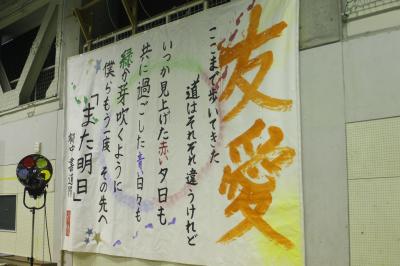 友愛
ここまで歩いてきた
道はそれぞれ違うけれど
いつか見上げた赤い夕日も
共に過ごした青い日々も
緑の芽吹くように
僕らもう一度 その先へ
「また明日」
書道部